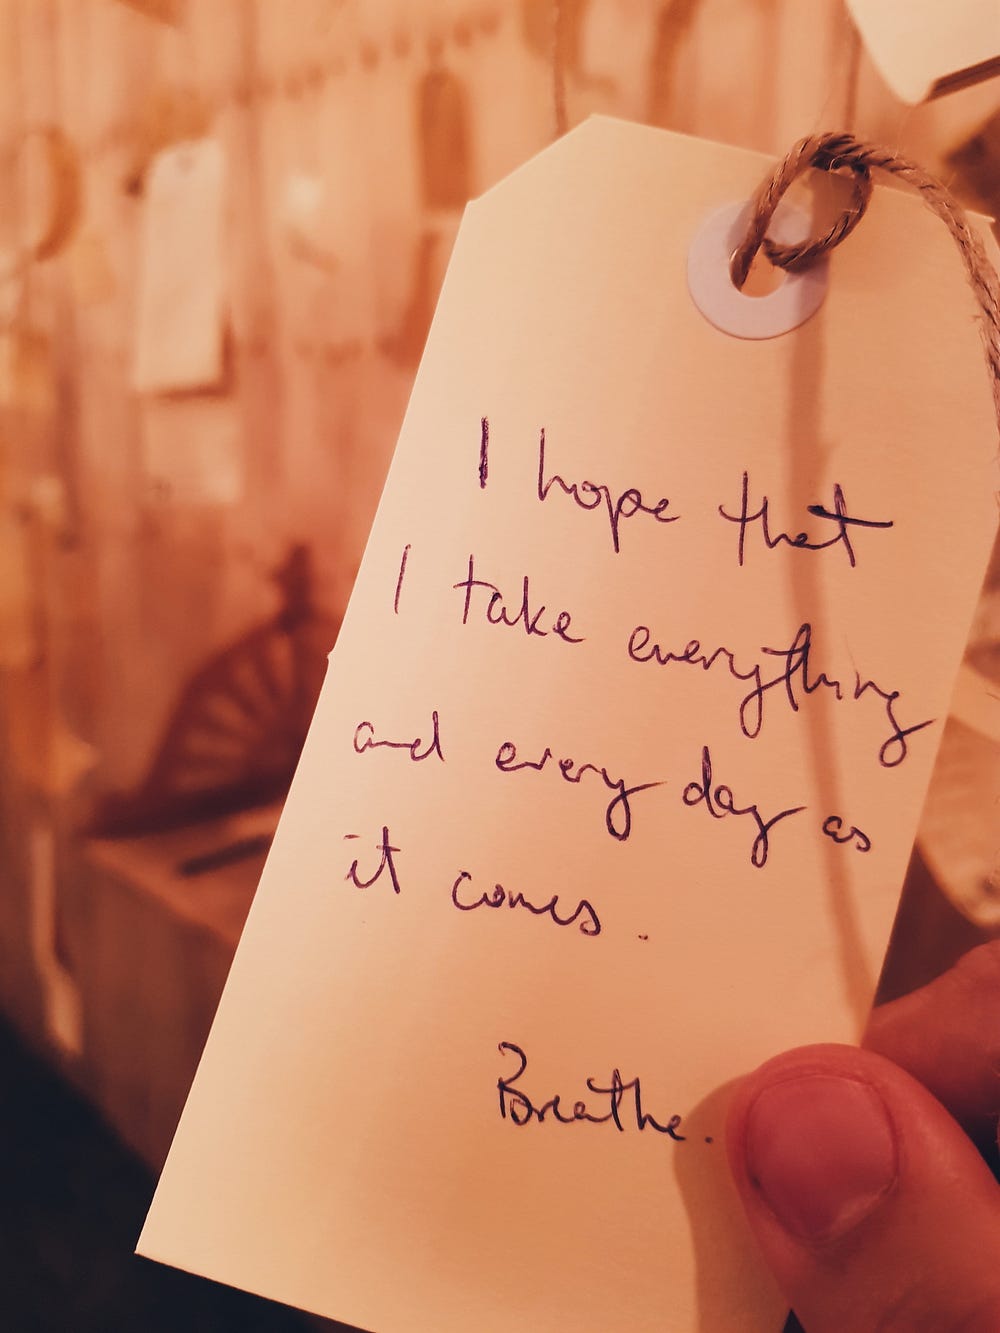 I hope that
I take everything
and every day as
it comes.
Breathe.